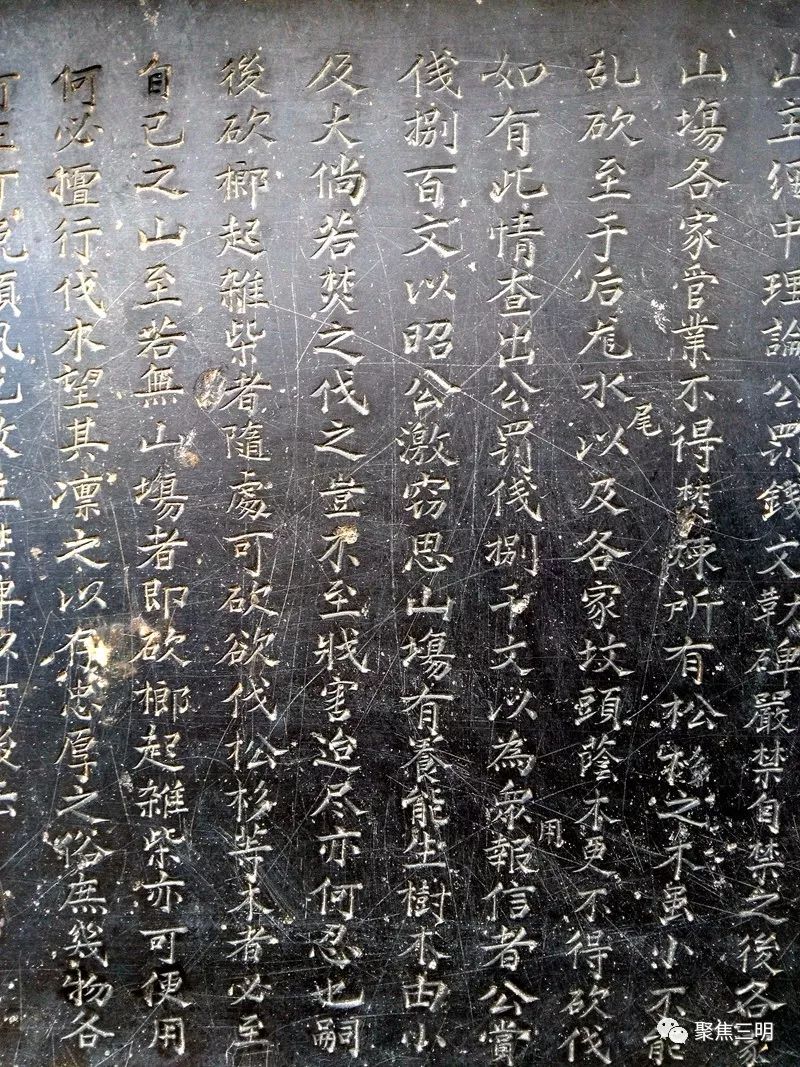 山主經中理論公罰錢文勒碑嚴禁自禁之後各家
山塲各家管業不得焚煉所有松杉之木虽小不能
乱砍至于后龙水尾以及各家坟頭蔭木更不得砍伐
如有此情查出公罰伐捌千文以為衆用報信者公賞
伐捌百文以昭公激窃思山塲有養能生樹木由小
及大倘若焚之伐之豈不至戕害迨尽亦何忍也嗣
後砍榔起雜柴者隨處可砍欲伐松杉等木者必至
自已之山至若無山塲者即砍榔起雜柴亦可便用
何必擅行伐木望其凛之以存忠厚之俗庶幾物各
聚焦三明